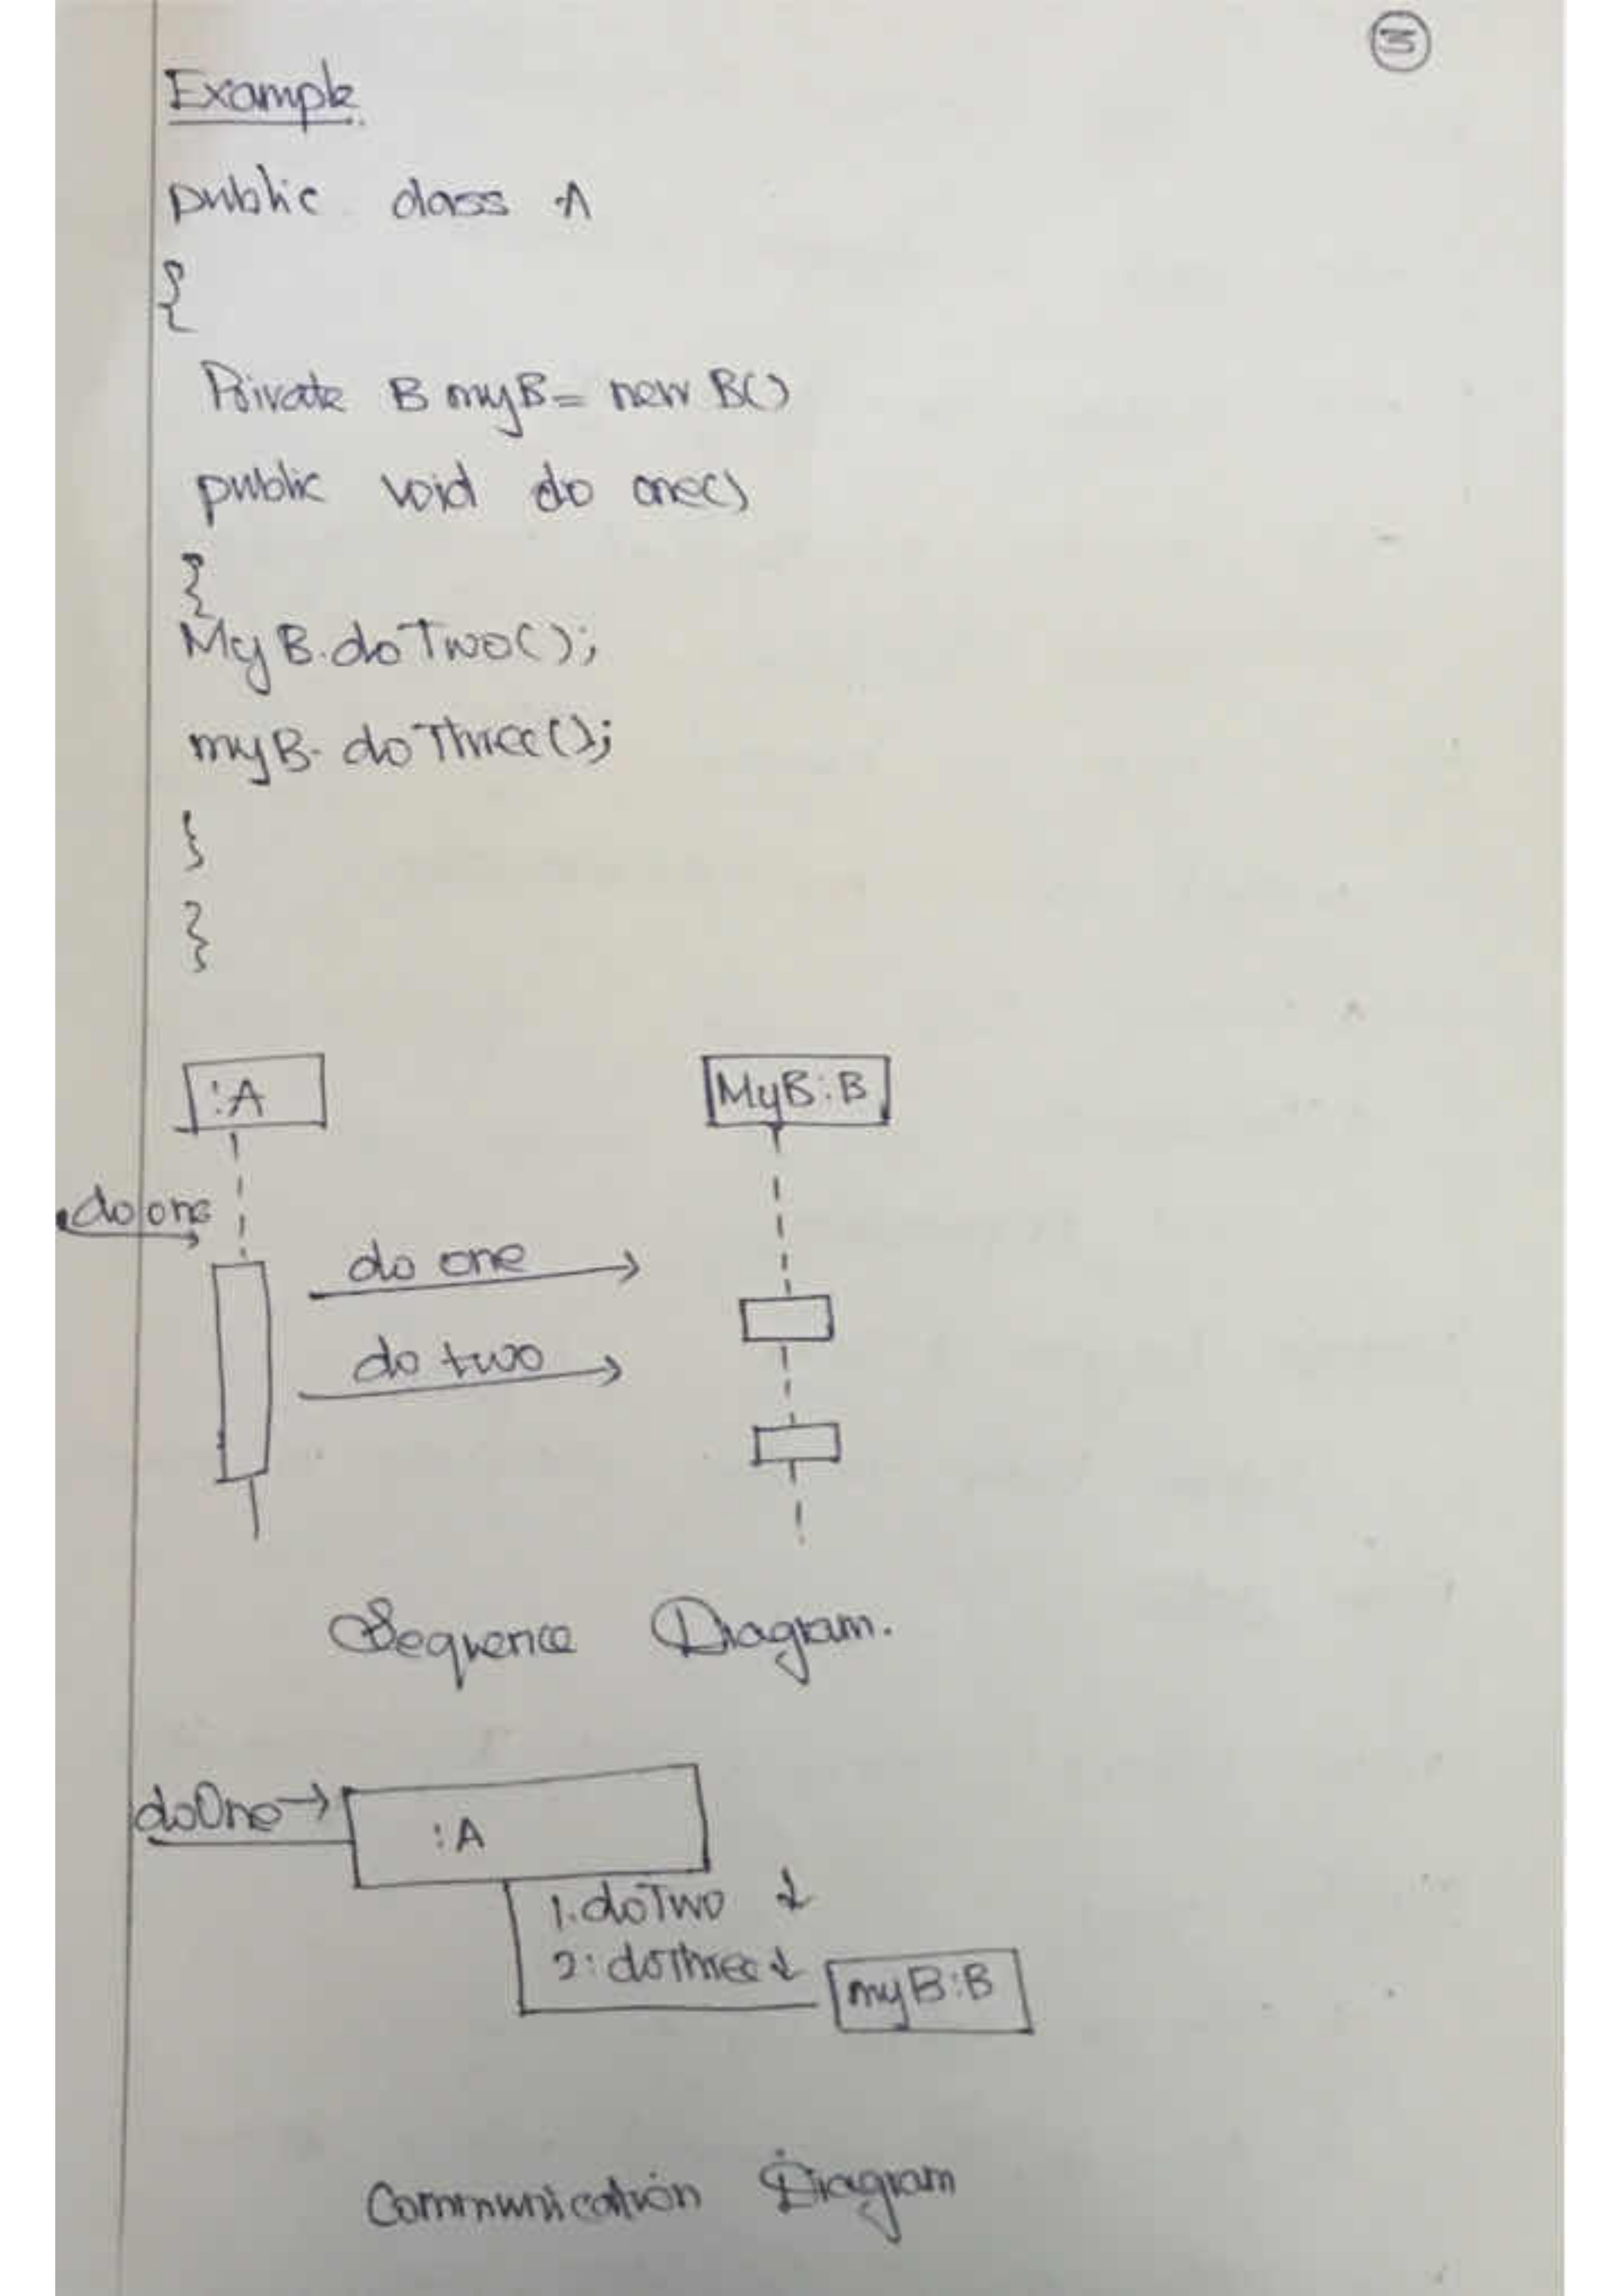 3
Example.
public class A
{
Private B myB = new B()
public void do one()
{
My B.doTwo();
myB. doThree();
}
}
:A
MyB:B
do one
do one
do two
Sequence Diagram.
doOne →
:A
1.doTwo ↓
2:doThree ↓
myB:B
Communication Diagram